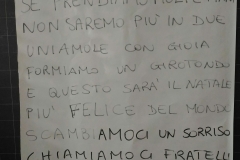 SE PRENDIAMO
NON SAREMO PIÙ IN DUE
UNIAMOLE CON GIOIA
FORMIAMO UN GIROTONDO
E QUESTO SARÀ IL NATALE
PIÙ FELICE DEL MONDO
SCAMBIAMOCI UN SORRISO
CHIAMIAMOCI FRATELLI